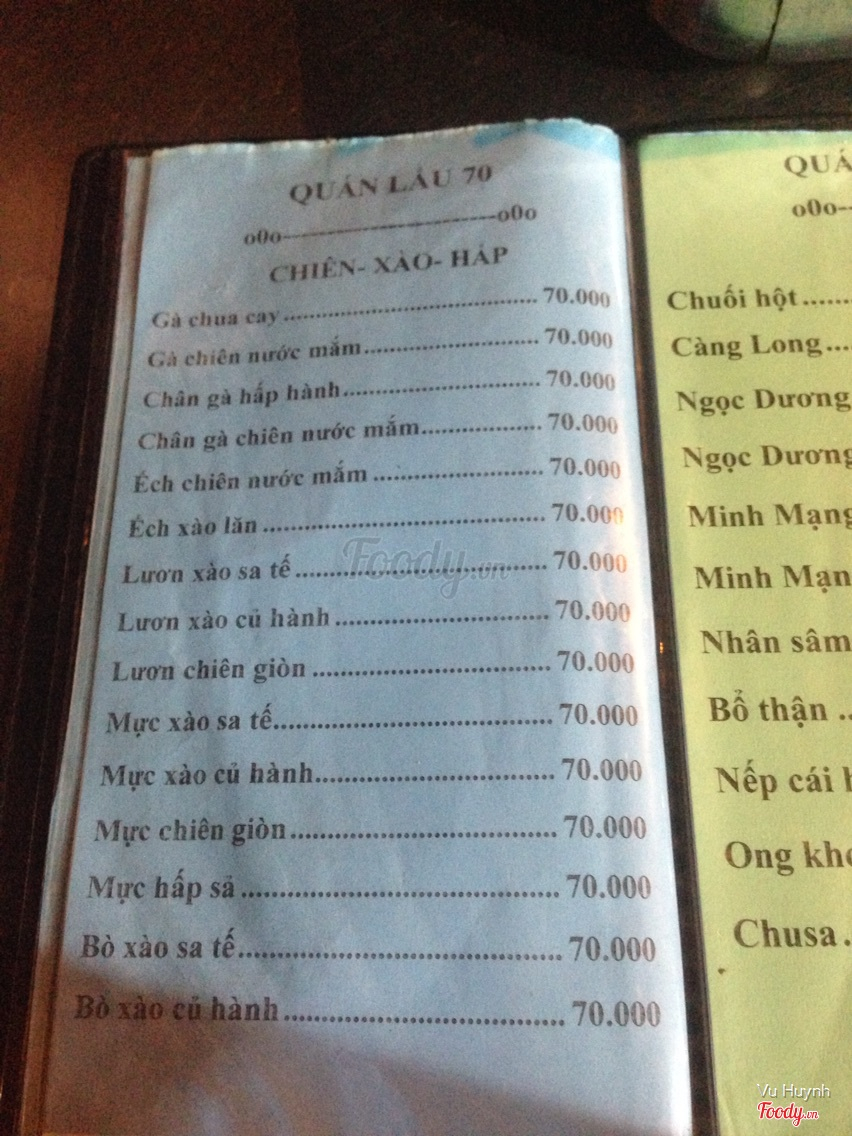 QUÁN LẨU 70
o0o-----------------------------o0o
CHIÊN- XÀO- HẤP
Gà chua cay ........ 70.000
Gà chiên nước mắm........ 70.000
Chân gà hấp hành........ 70.000
Chân gà chiên nước mắm........ 70.000
Ếch chiên nước mắm ........ 70.000
Ếch xào lăn ........ 70.000
Lươn xào sa tế ........ 70.000
Lươn xào củ hành ........ 70.000
Lươn chiên giòn ........ 70.000
Mực xào sa tế........ 70.000
Mực xào củ hành........ 70.000
Mực chiên giòn........ 70.000
Mực hấp sả ........ 70.000
Bò xào sa tế........ 70.000
Bò xào củ hành ........ 70.000
Foody.vn
QUÁ
o0o--
Chuối hột......
Càng Long....
Ngọc Dương
Ngọc Dương
Minh Mạng
Minh Mạn
Nhân sâm
Bổ thận ..
Nếp cái h
Ong kho
Chusa.
Vu Huynh
Foody.vn